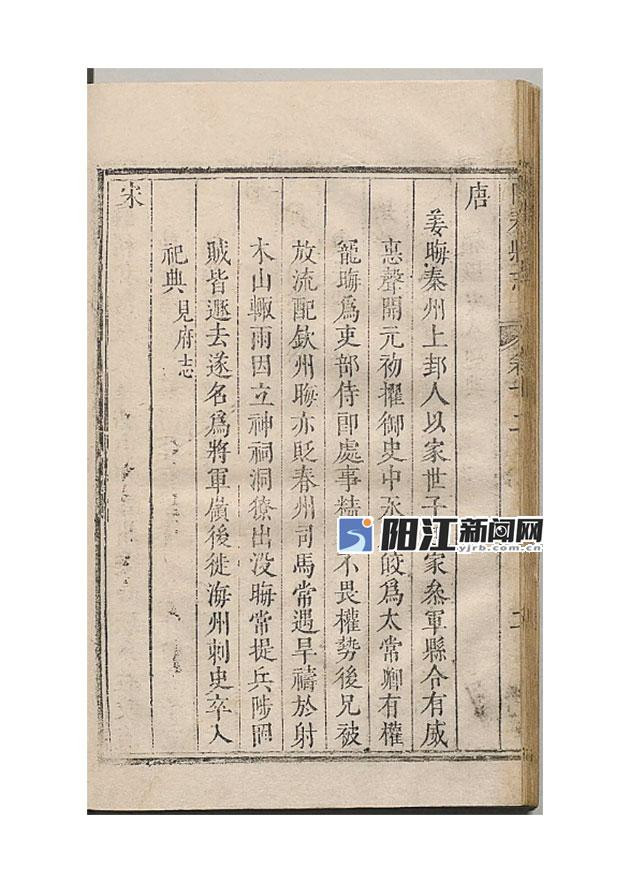 唐
姜晦秦州上邽人以家世子
家叅軍縣令有威
惠聲開元初擢御史中丞
皎爲太常卿有權
寵晦爲吏部侍郎處事精
不畏權勢後兄被
放流配欽州晦亦貶春州司馬常遇旱禱於射
木山輒雨因立神祠洞獠出没晦常提兵陟岡
賊皆遯去遂名爲將軍嶺後徙海州刺史卒入
祀典見府志
宋
阳江新闻网
yjrb.com.cn